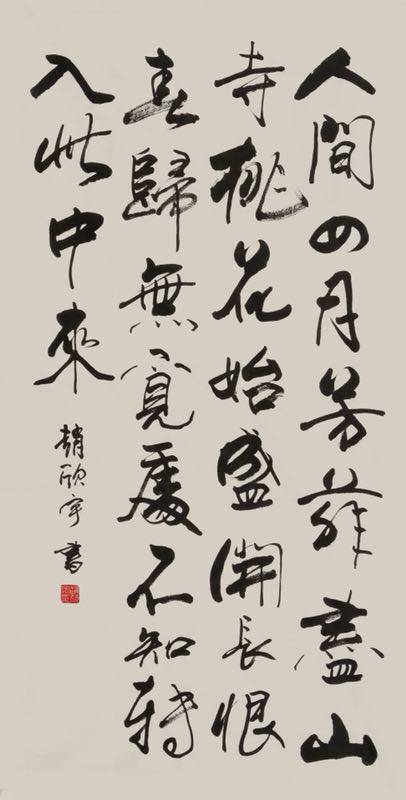 人間四月芳菲盡山
寺桃花始盛開長恨
春歸無覓處不知轉
入此中來
趙欣宇書